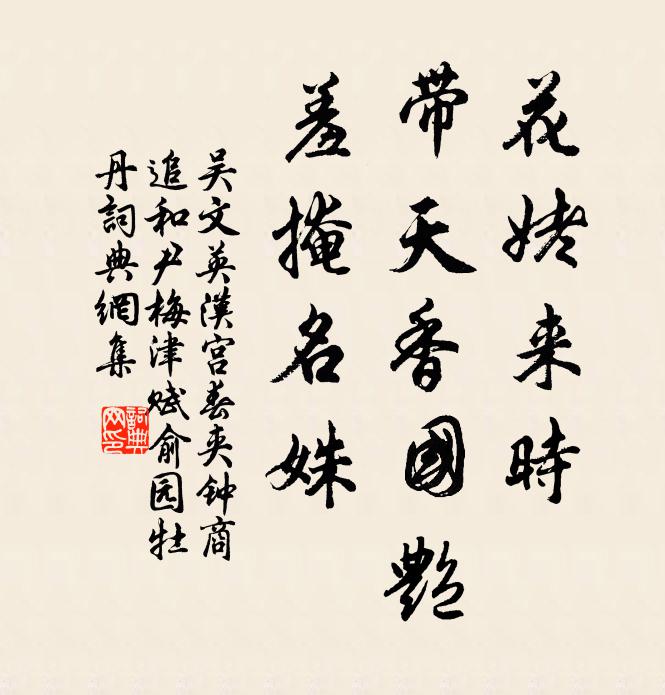 花姥来時
带天香國艷
羞掩名姝
吴文英漢宫春夹钟商
追和尹梅津赋俞园牡
丹詞典網集
詞典网印